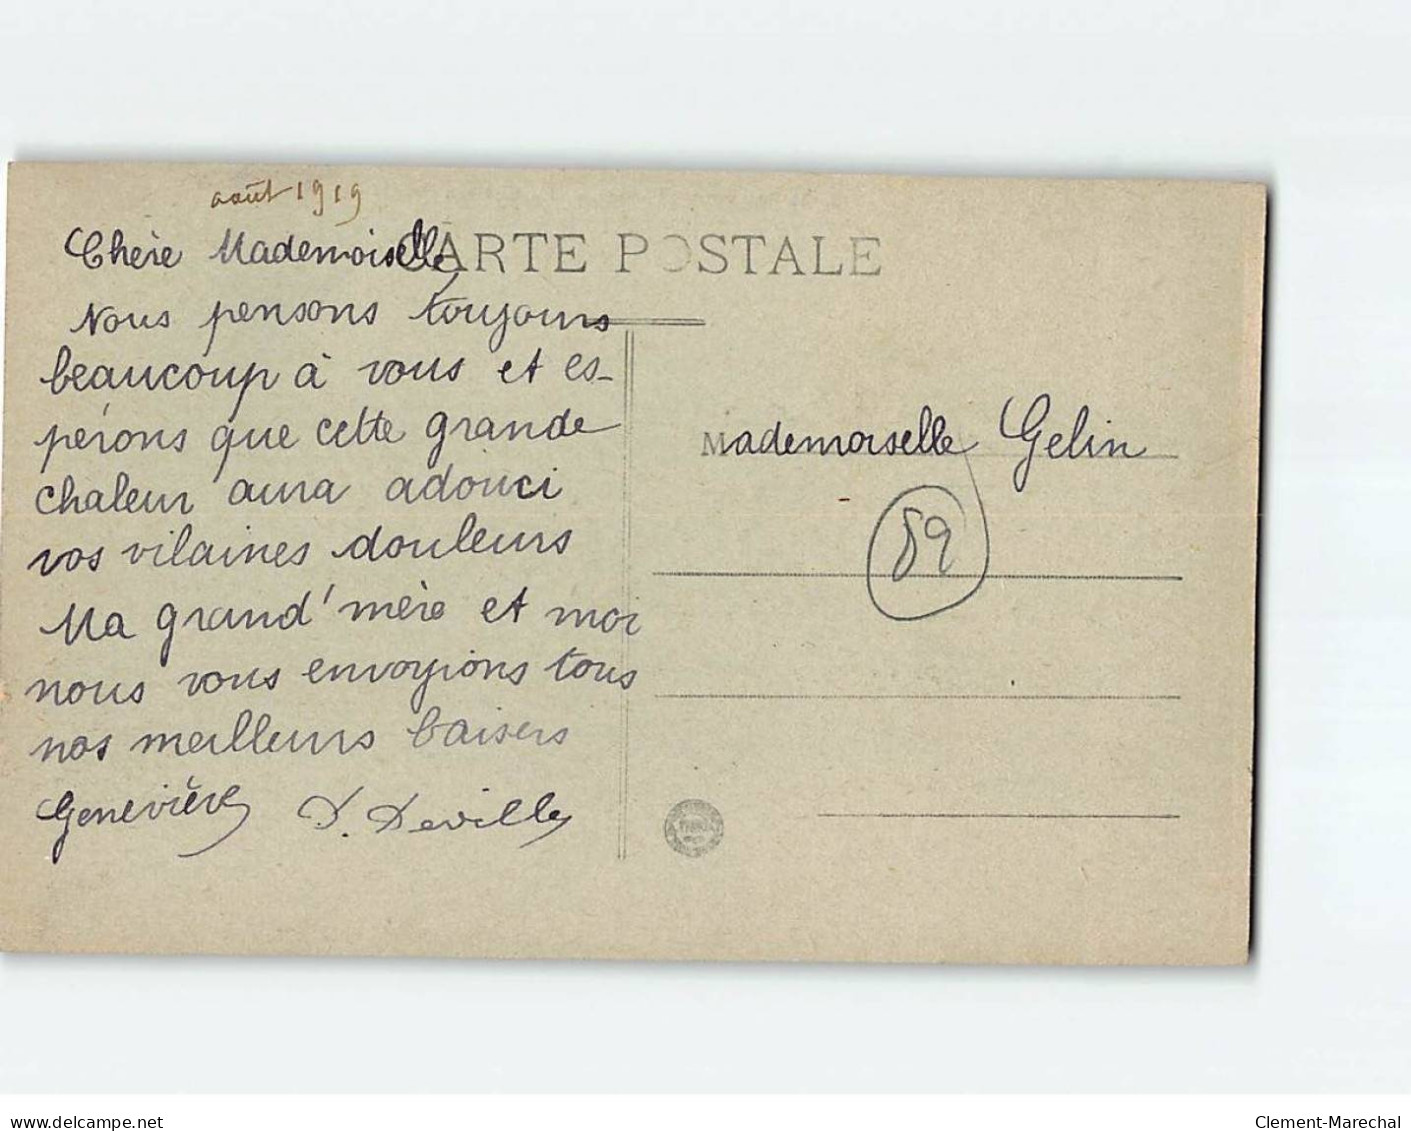 août 1919
CARTE POSTALE
Chère Mademoiselle,
Nous pensons toujours
beaucoup à vous et es-
pérons que cette grande
chaleur aura adouci
vos vilaines douleurs
Ma grand'mère et moi
nous vous envoyions tous
nos meilleurs baisers
Geneviève D. Deville
Mademoiselle Gelin
89
www.delcampe.net
Clement-Marechal